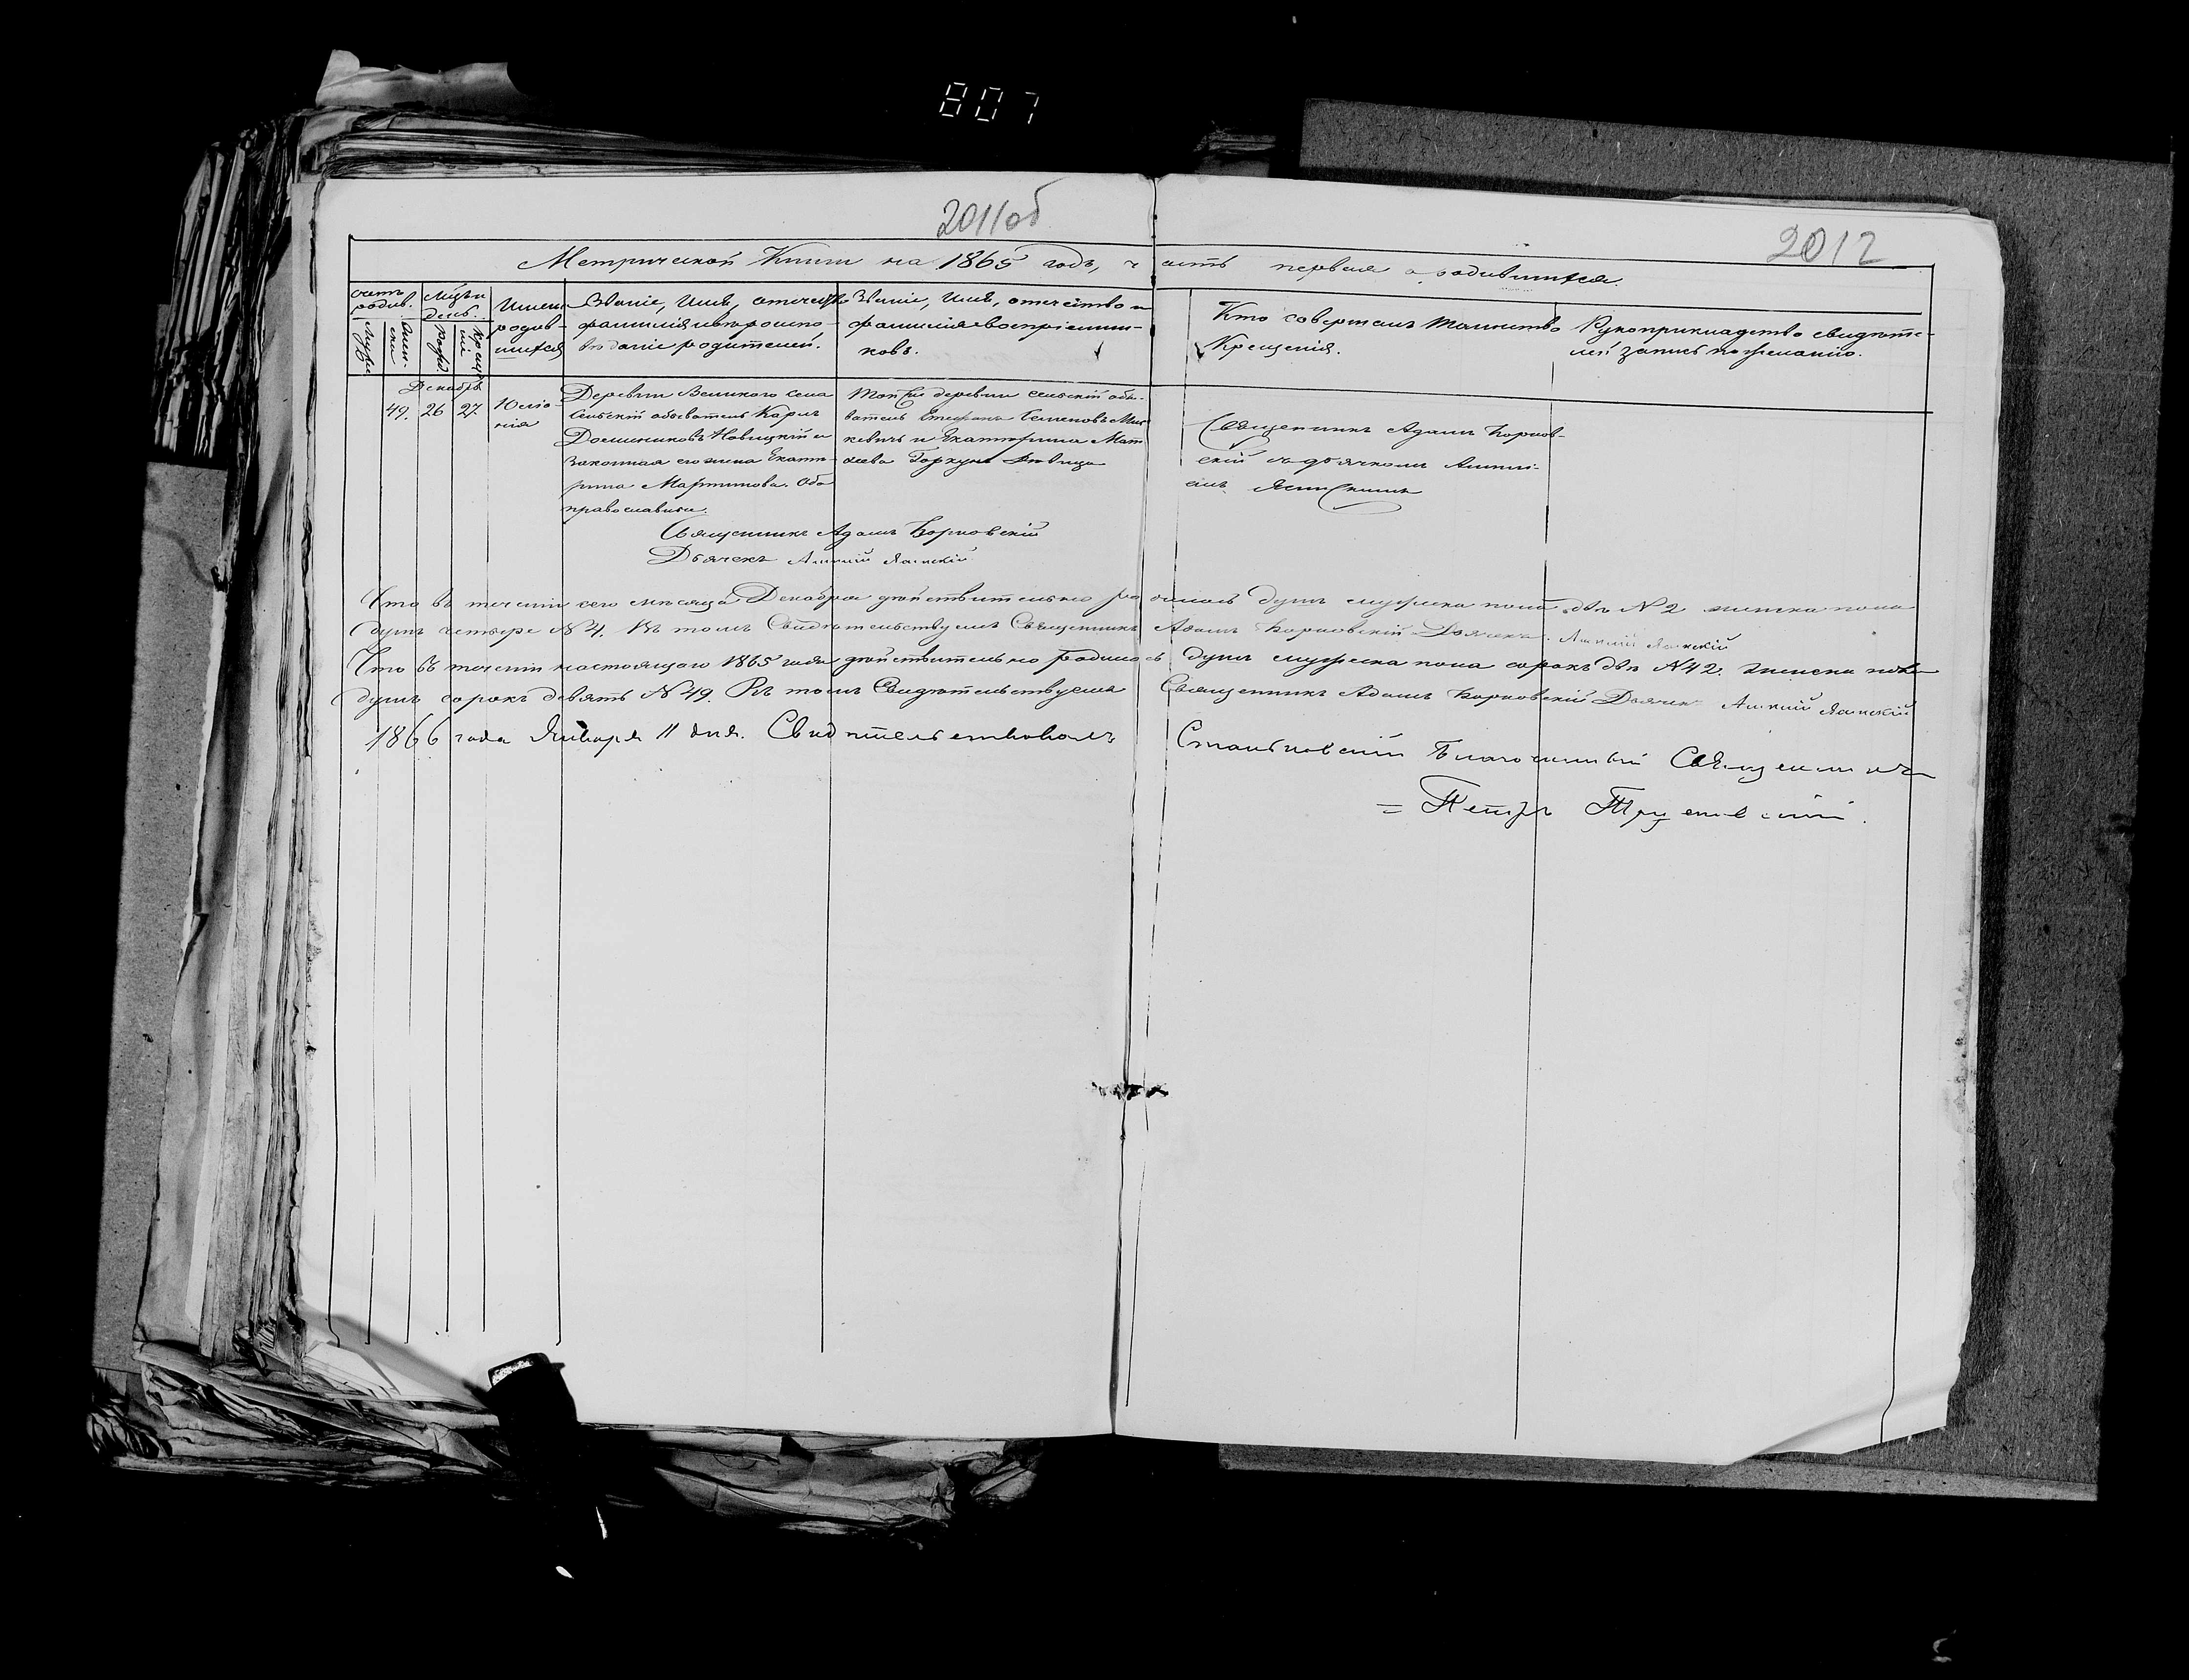 807
2011об
2012
Метрической Книги на 1865 годъ, часть первая о родившихся.
счетъ родив.
Мужес
Жен-ски.
Мѣсяцъ и день.
рожд.
Креще-нія
Имена родив-шихся
Званіе, Имя, отчество фамилія и вѣроиспо-вѣданіе родителей.
Званіе, имя, отчество и фамилія воспріемни-ковъ.
Кто совершалъ таинство Крещенія.
Рукоприкладство свидѣте-лей записи по желанію.
Декабрь
49. 26 27
Юліа-нія
Деревни Великого села
Сельскій обыватель Карлъ
Доминиковъ Новицкій и
законная его жена Екате-
рина Мартинова. Оба
православныи.
Той же деревни сельскій обы-
ватель Стефанъ Семеновъ Миц
кевичъ и Екатерина Мат
ѳеева Горкунъ дѣвица
Священникъ Адамъ Борнов-
скій съ дьячкомъ
Священникъ Адамъ Борновскій
Дьячекъ
Что въ теченіи сего мѣсяца Декабря дѣйствительно родилось душъ мужеска пола двѣ N 2 женска пола
душъ четыре N 4. Въ томъ Свидѣтельствуемъ Священникъ Адамъ Борновскій Дьячекъ
Что въ теченіи настоящаго 1865 года дѣйствительно родилось душъ мужеска пола сорокъ двѣ N 42. женска пола
душъ сорокъ девять N 49. Въ томъ Свидѣтельствуемъ Священникъ Адамъ Борновскій Дьячекъ
1866 года Января 11 дня. Свидѣтельствовалъ Станьковскій Благочинный Священникъ
= Петръ